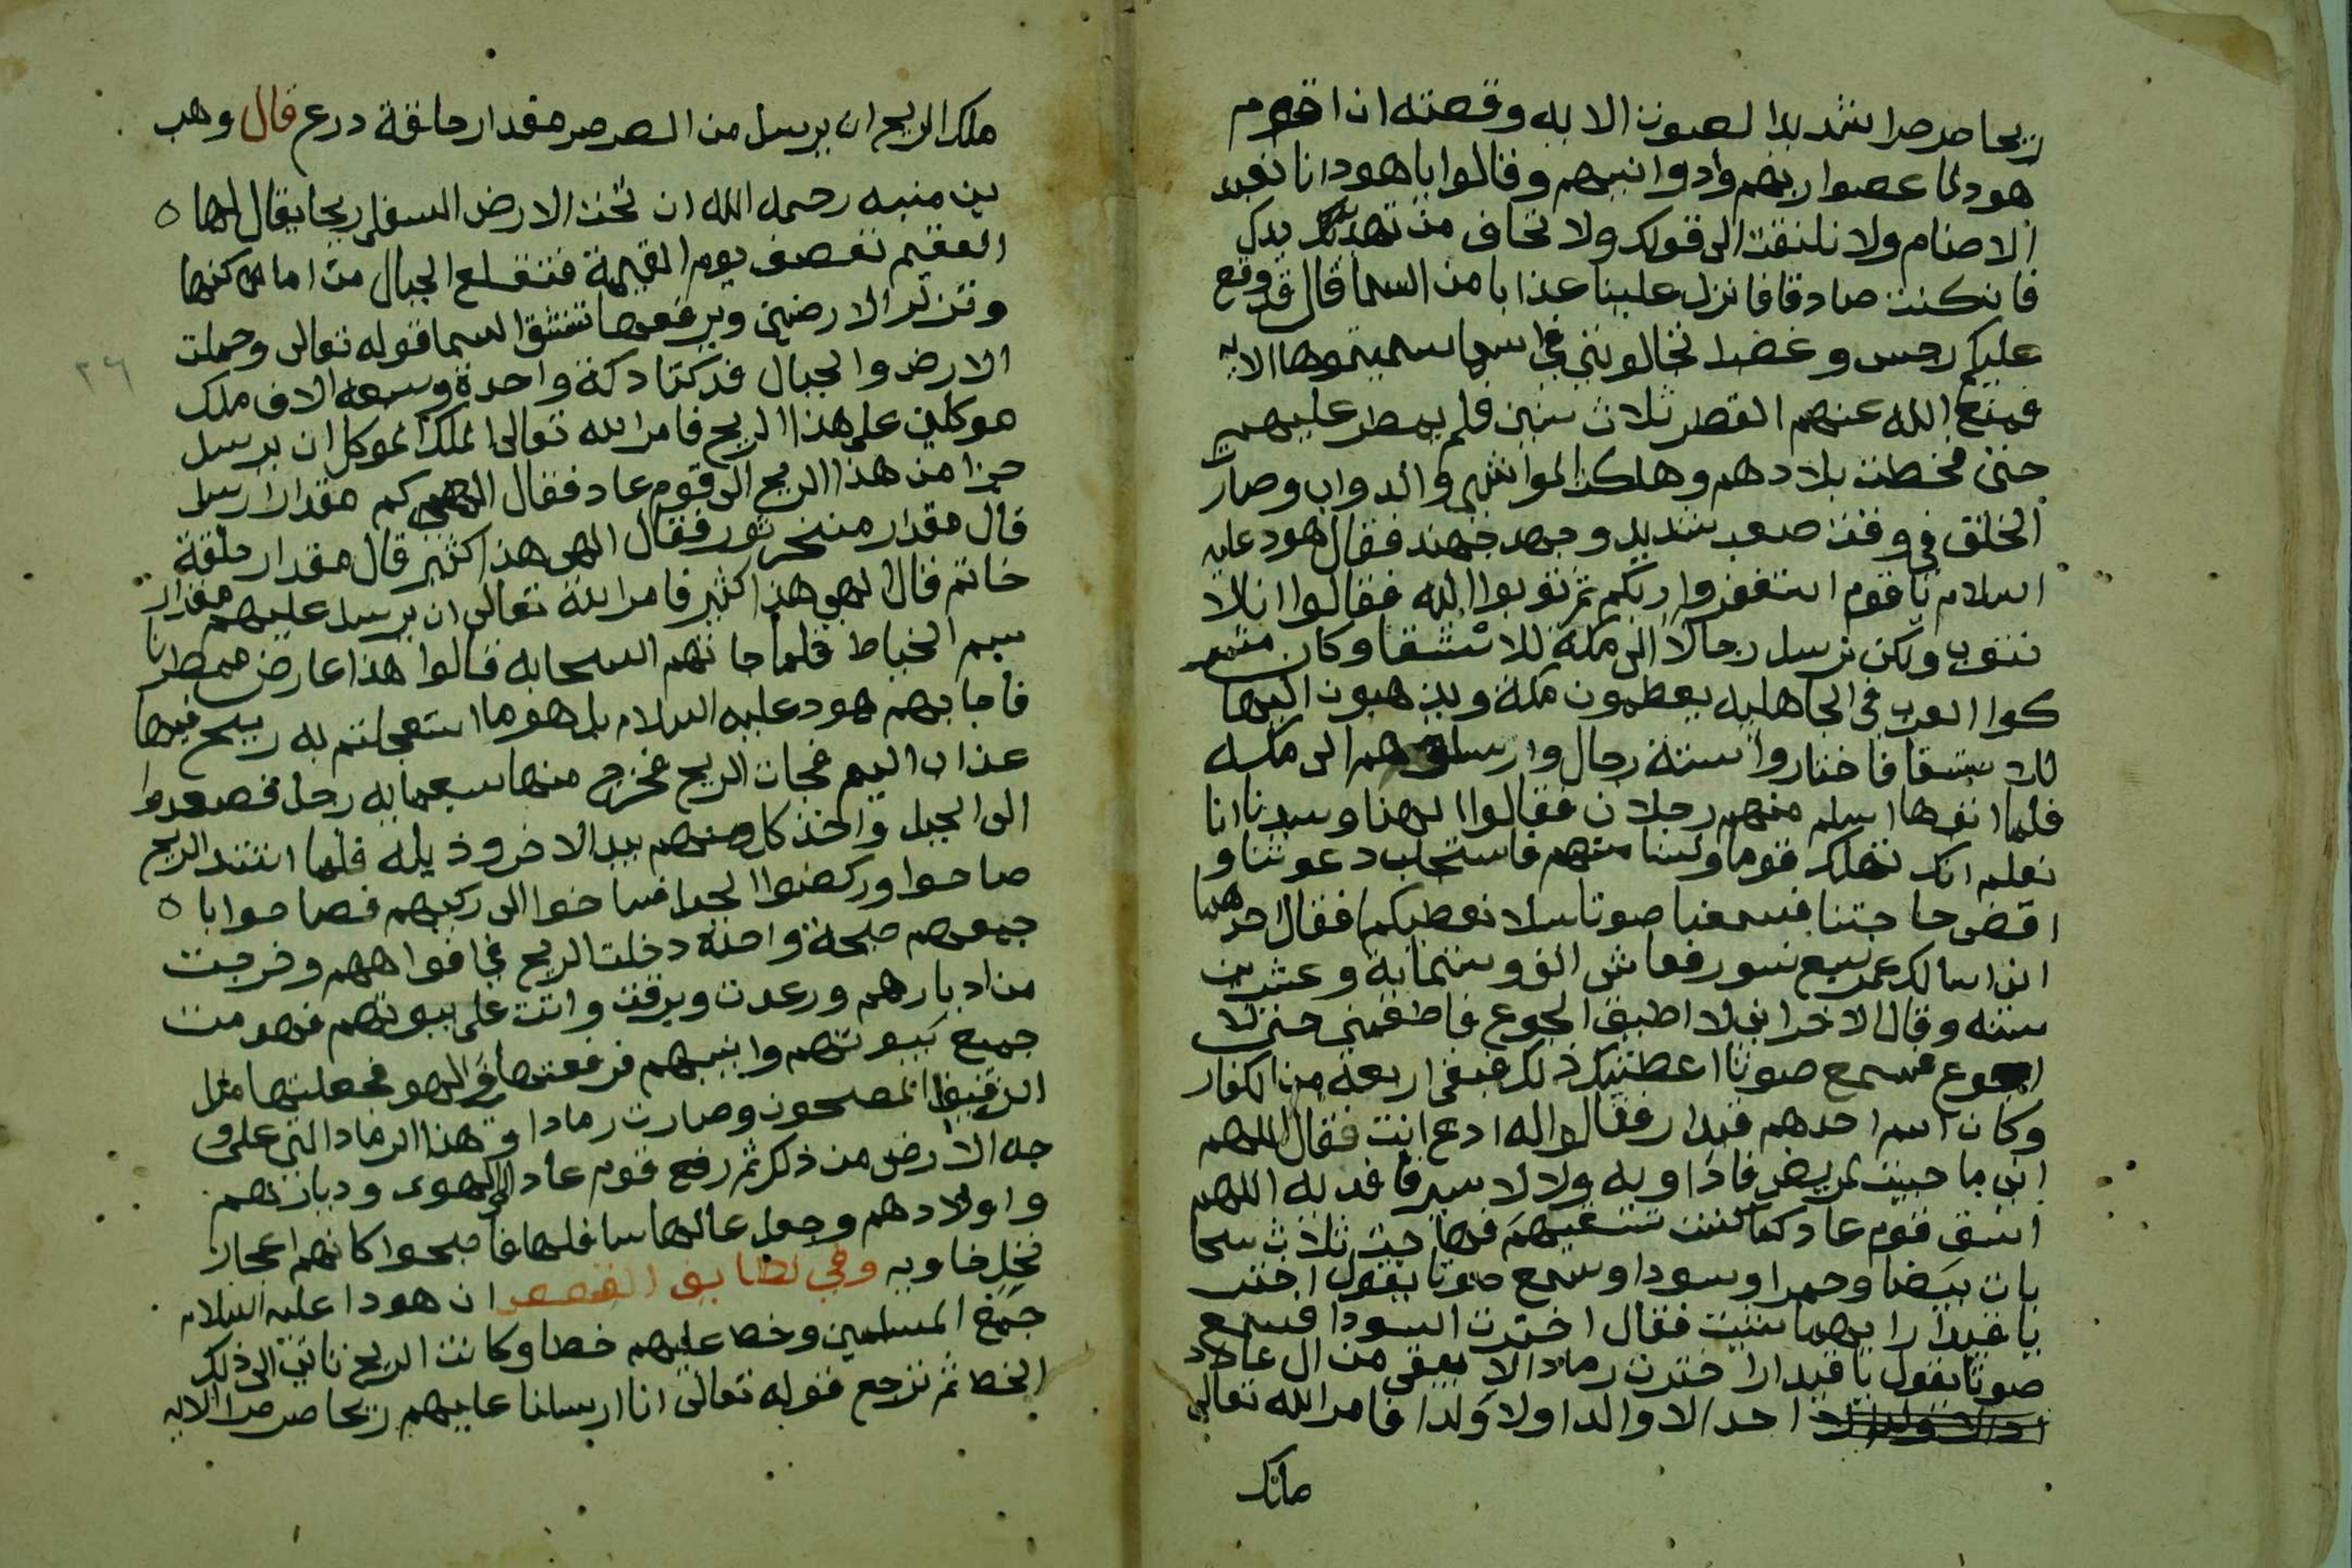 ريحا صرصرا شديدا لصوت الايه وقصته ان اقوم
هود لما عصوا ربهم واذوا نبيهم وقالوا يا هود انا نعبد
الاصنام ولا نلتفت الى قولك ولا نخاف من تهديدك
فان كنت صادقا فانزل علينا عذابا من السما قال قد وقع
عليكم رجس وغضب تجادلونني في اسما سميتموها الايه
فمنع الله عنهم القطر ثلاث سنين فلم يمطر عليهم
حتى قحطت بلادهم وهلكت المواشي والدواب وصار
الخلق في وقت صعب شديد وجهد جهيد فقال هود عليه
السلام يا قوم استغفروا ربكم ثم توبوا اليه فقالوا انا لا
نتوب ولكن نرسل رجالا الى مكة للاستسقا وكان
العرب في الجاهليه يعظمون مكة ويذهبون اليها
للاستسقا فاختاروا ستة رجال وارسلوهم الى مكه
فلما اتوها اسلم منهم رجلان فقالوا الهنا وسيدنا انا
نعلم انك تهلك قوما ولسنا منهم فاستجب دعوتنا و
اقض حاجتنا فسمعنا صوتا سلا نعطيكما فقال احدهما
اني اسالك عمر سبع نسور فعاش الف وستماية وعشرين
سنه وقال الاخر اني لا اطيق الجوع فاطعمني حتى لا
اجوع فسمع صوتا اعطيتك ذلك فبقى اربعه من الكفار
وكان اسم احدهم قيدار فقالوا له ادع انت فقال اللهم
اني ما جيت لمريض فاداويه ولا لاسير فافديه اللهم
اسق قوم عاد كما كنت تسقيهم فهاجت ثلاث سحا
بات بيضا وحمرا وسودا وسمع صوتا يقول اختر
يا قيدار ايهما شيت فقال اخترت السودا فسمع
صوتا يقول يا قيدار اخترت رمادا لا يبقى من ال عاد
احدا لا والدا ولا ولدا فامر الله تعالى
ملك
ملك الريح ان يرسل من الصرصر مقدار حلقة درع قال وهب
بن منبه رحمه الله ان تحت الارض السفلى ريحا يقال لها ه
العقيم تعصف يوم القيمة فتقلع الجبال من اماكنها
وتزلزل الارضين ويرفعها تنشق السما قوله تعالى وحملت
الارض والجبال فدكتا دكة واحدة وسبعه الاف ملك
موكلين على هذا الريح فامر الله تعالى الملك الموكل ان يرسل
جزا من هذا الريح الى قوم عاد فقال الهى كم مقدار ارسل
قال مقدار منخر ثور فقال الهى هذا كثير قال مقدار حلقة
خاتم قال الهى هذا كثير فامر الله تعالى ان يرسل عليهم مقدار
سم الخياط فلما جاتهم السحابه قالوا هذا عارض ممطرنا
فاجابهم هود عليه السلام بل هو ما استعجلتم به ريح فيها
عذاب اليم فجات الريح فخرج منها سبعمايه رجل فصعدوا
الى الجبل واخذ كل منهم بيد الاخر وذيله فلما اشتد الريح
صاحوا وركضوا الجبل فساخوا الى ركبهم فصاحوا با ه
جمعهم صيحة واحدة دخلت الريح في افواههم وخرجت
من ادبارهم ورعدت وبرقت واتت على بيوتهم فهدمت
جميع بيوتهم وابنيتهم فرفعتها في الهوى فجعلتها مثل
الدقيق المطحون وصارت رمادا وهذا الرماد التي على و
جه الارض من ذلك ثم رفع قوم عاد الى الهوى ودباتهم
واولادهم وجعل عاليها سافلها فاصبحوا كانهم اعجاز
نخل خاويه وفي لطايف القصص ان هودا عليه السلام
جمع المسلمين وخط عليهم خطا وكانت الريح تاتي الى ذلك
الخط ثم ترجع قوله تعالى انا ارسلنا عليهم ريحا صرصرا الايه
٢٦